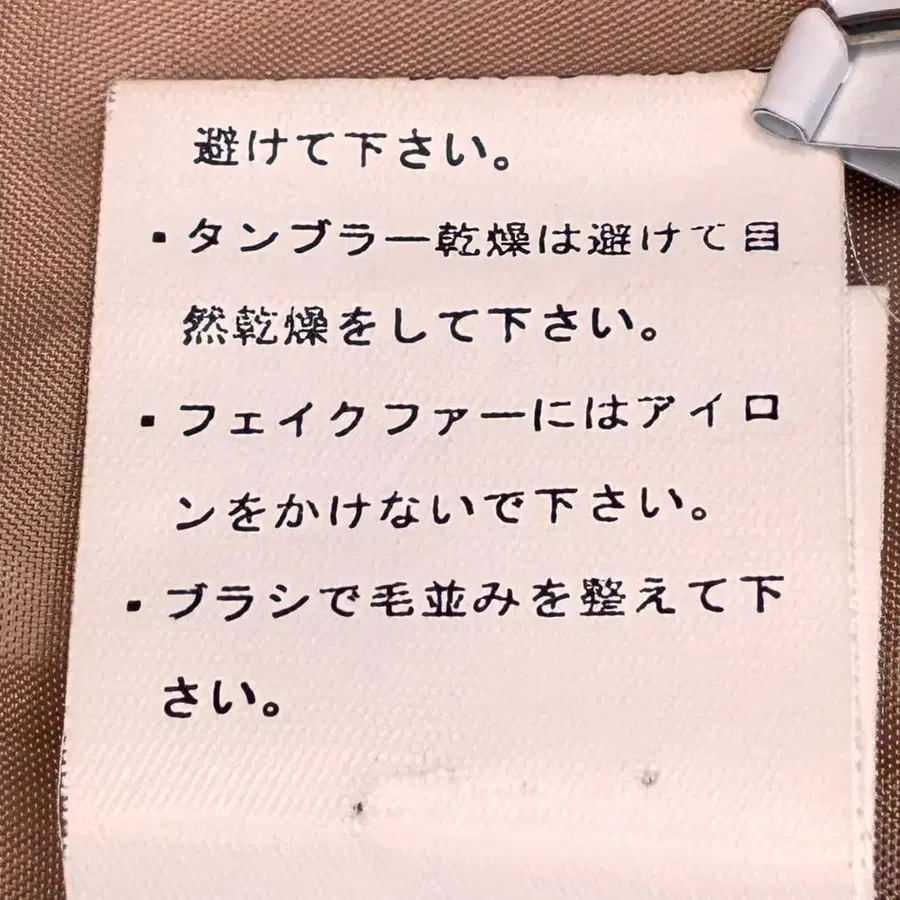 避けて下さい。
・タンブラー乾燥は避けて自
然乾燥をして下さい。
・フェイクファーにはアイロ
ンをかけないで下さい。
・ブラシで毛並みを整えて下
さい。